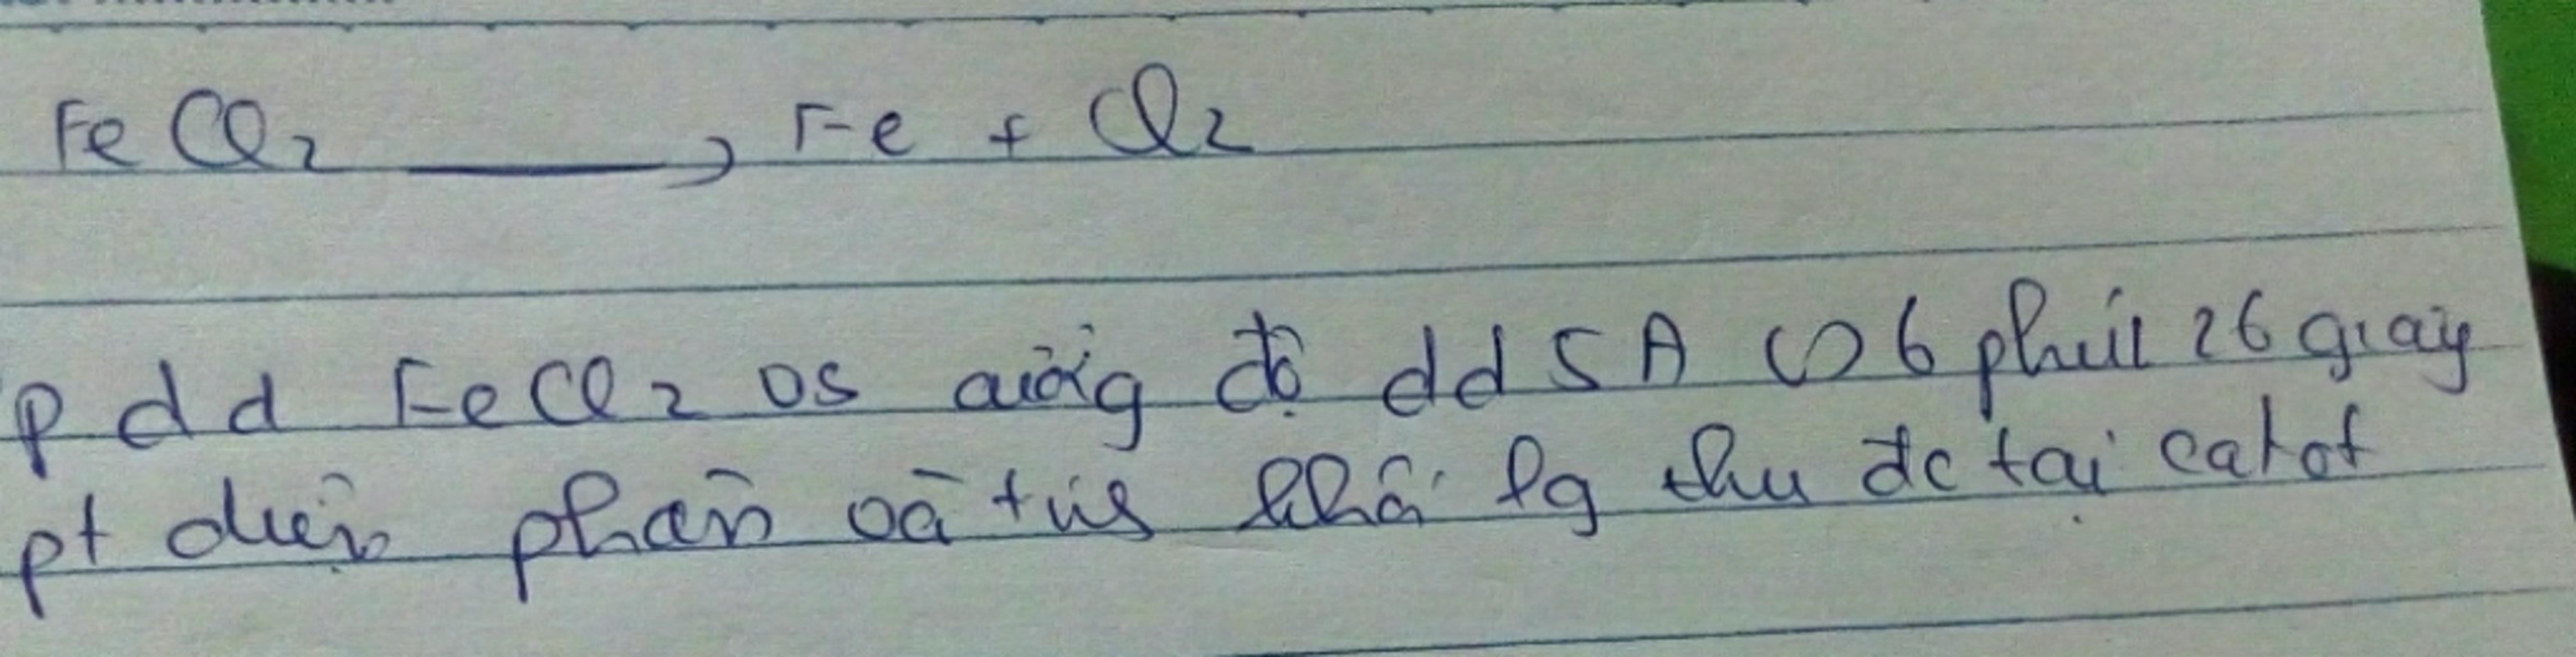 FeCl2 → Fe + Cl2
p dd FeCl2 vs cường độ dd 5A 6 phút 26 giây
pt điện phân và tính khối lg thu đc tại catot